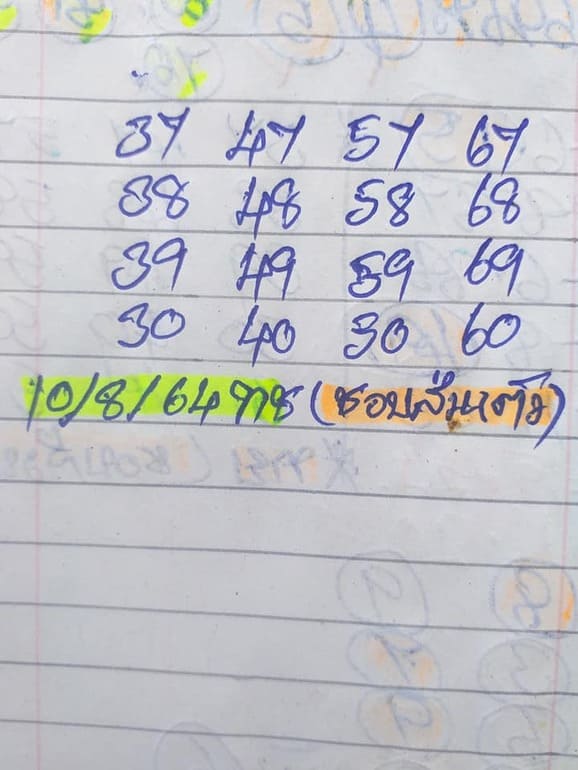 37 47 57 67
38 48 58 68
39 49 59 69
30 40 50 60
10/8/64 (ชอบส่วนตัว)